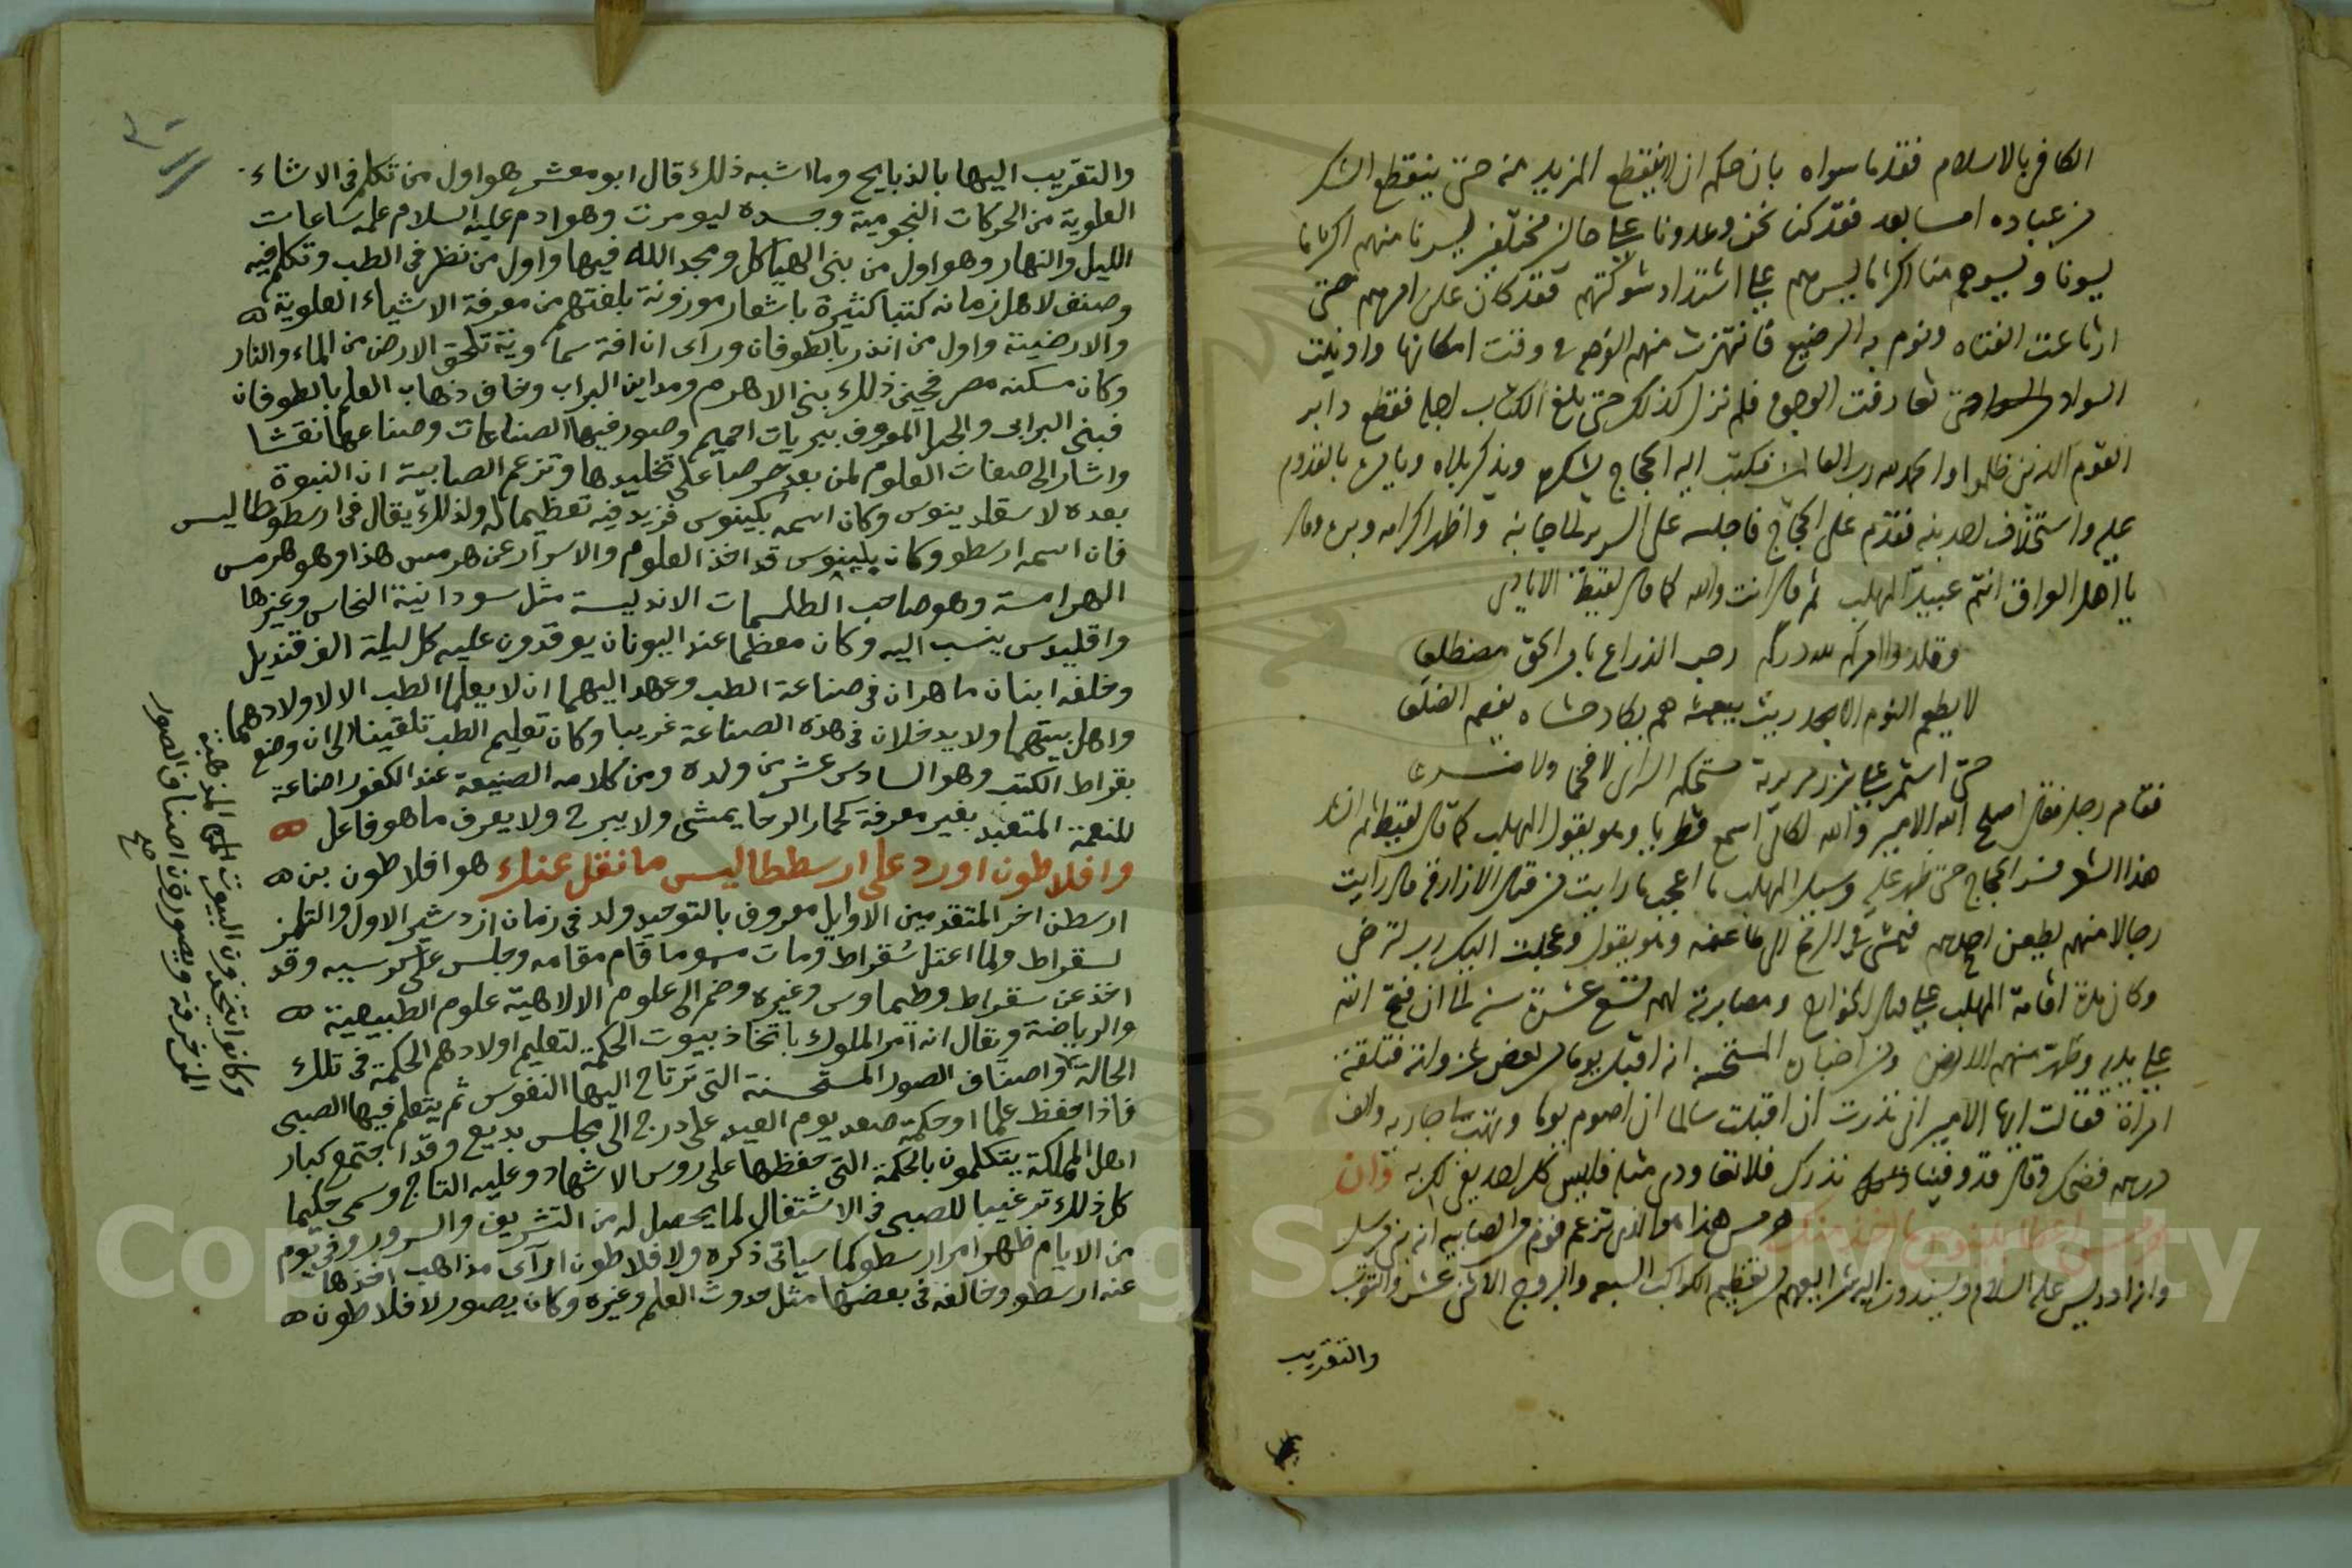 الكافي بالاسلام فقد ما سواه بان حكم ان لا ينقطع المزيد منه حتى ينقطع الشكر
من عباده اما بعد فقد كنا نحن وعدونا على حالين مختلفين يسرنا منهم اكثر مما
يسونا ويسوهم منا اكثر مما يسرهم على اشتداد شوكتهم فقد كان علن امرهم حتى
ارتاعت الفتاه ونوم به الرضيع فانتهزت منهم الفرصه في وقت امكانها وادنيت
السواد من السواد حتى تعارفت الوجوه فلم نزل كذلك حتى بلغ الكتاب اجله فقطع دابر
القوم الذين ظلموا والحمد لله رب العالمين فكتب اليه الحجاج يشكره ويذكر بلاه ويامره بالقدوم
عليه واستخلاف احد بنيه فقدم على الحجاج فاجلسه على السرير الى جانبه واظهر اكرامه وبره وقال
يا اهل العراق انتم عبيد المهلب ثم قال انت والله كما قال لقيط الايادي
وقلدوا امركم لله دركم رحب الذراع بامر الحرب مضطلعا
لا يطعم النوم الا ريث يبعثه هم يكاد حشاه يقصم الضلعا
حتى استمر على شزر مريرته مستحكم الراي لا قحما ولا ضرعا
فقام رجل فقال اصلح الله الامير والله لكاني اسمع قطريا وهو يقول المهلب كما قال لقيط ثم انشد
هذا الشعر فسر الحجاج حتى ظهر عليه وسيل المهلب ما اعجب ما رايت من قتال الازارقة قال رايت
رجالا منهم يطعن احدهم فيمشي في الرمح الى طاعنه وهو يقول وعجلت اليك رب لترضى
وكان مدة اقامة المهلب على قتال الخوارج ومصابرته لهم تسع عشرة سنة الى ان فتح الله
على يديه وطهرت منهم الارض ومن اخباره المستحسنة انه اقبل يوما من بعض غزواته فتلقته
امراة فقالت ايها الامير اني نذرت ان اقبلت سالما ان اصوم يوما وتهب لي جارية والف
درهم فضحك وقال قد وفينا نذرك فلا تعاودي مثله فليس كل احد يفي لك به وان
هرمس اعطا بلينوس ما اخذ منك هرمس هذا هو الذي تزعم قوم من الصابية انه نبي مرسل
وانه ادريس عليه السلام ويسندون اليه شرايعهم من تعظيم الكواكب السبعه والبروج الاثني عشر والتقرب
والتقريب
والتقريب اليها بالذبايح وما اشبه ذلك قال ابو معشر هو اول من تكلم في الاشاء
العلوية من الحركات النجومية وجده ليومرت وهو ادم عليه السلام علمه ساعات
الليل والنهار وهو اول من بنى الهياكل ومجد الله فيها واول من نظر في الطب وتكلم فيه
وصنف لاهل زمانه كتبا كثيرة باشعار موزونة بلغتهم من معرفة الاشياء العلوية
والارضية واول من انذر بالطوفان وراى ان افة سماوية تلحق الارض من الماء والنار
وكان مسكنه مصر فحينئ ذلك بنى الاهرم ومداين البراب وخاف ذهاب العلم بالطوفان
فبنى البرابى والجبل المعروف ببربات احميم وصور فيها الصناعات وصناعها نقشا
واشار الى صفات العلوم لمن بعد حرصا على تخليدها وتزعم الصابية ان النبوة
بعده لاسقلدينوس وكان اسمه بكينوس فزيد فيه تعظيما له ولذلك يقال في ارسطوطاليس
فان اسمه ارسطو وكان بلينوس قد اخذ العلوم والاسرار عن هرمس هذا وهو هرمس
الهرامسة وهو صاحب الطلسمات الاندلسية مثل سودانية النحاس وغيرها
واقليدس ينسب اليه وكان معظما عند اليونان يوقدون عليه كل ليلة الف قنديل
وخلفه ابنان ماهران في صناعة الطب وعهد اليهما ان لا يعلما الطب الا لاولادهما
واهل بيتهما ولا يدخلان في هذه الصناعة غريبا وكان تعليم الطب تلقينا الى ان وضع
بقراط الكتب وهو السادس عشر من ولده ومن كلامه الصنيعة عند الكفور اضاعة
للنعمة المتعبد بغير معرفة كحمار الرحا يمشي ولا يبرح ولا يعرف ما هو فاعل
وافلاطون اورد على ارسططاليس ما نقل عنك هو افلاطون بن
ارسطن اخر المتقدمين الاوايل معروف بالتوحيد ولد في زمان ازدشير الاول والتلمز
لسقراط ولما اعتل سقراط ومات مسوما قام مقامه وجلس على كرسيه وقد
اخذ عن سقراط وطيماوس وغيره وضم الى علوم الالاهية علوم الطبيعية
والرياضة ويقال انه امر الملوك باتخاذ بيوت الحكمة لتعليم اولادهم الحكمة في تلك
الحالة واصناف الصور المستحسنة التي ترتاح اليها النفوس ثم يتعلم فيها الصبى
فاذا حفظ علما او حكمة صعد يوم العيد على درج الى مجلس بديع وقد اجتمع كبار
اهل المملكة يتكلمون بالحكمة التي حفظها على روس الاشهاد وعليه التاج وسمى حكيما
كل ذلك ترغيبا للصبى في الاشتغال لما يحصل له من التشريف والسرور وفي يوم
من الايام ظهر امر ارسطو كما سياتي ذكره ولافلاطون ارآى مذاهب اخذها
عنه ارسطو وخالفه في بعضها مثل حدوث العلم وغيره وكان يصور لافلاطون
وكانوا يتخذون البيوت المذهبة
المزخرفة ويصورون اصناف الصور
صح
Copyright © King Saud University